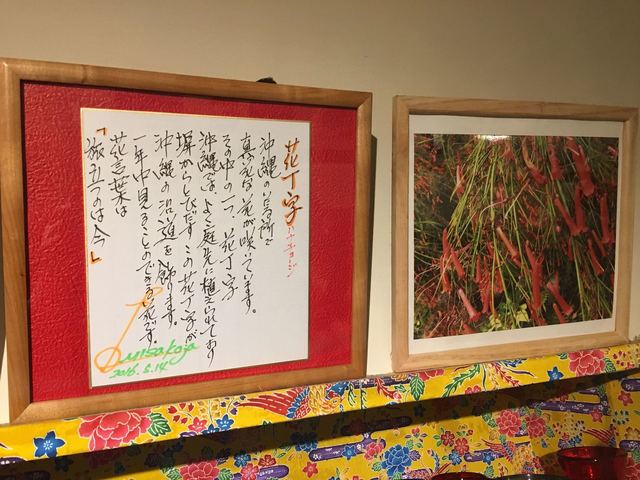 花丁字
ハナチョージ
沖縄のいたる所で
真っ赤な花が咲いています。
その中の一つ、花丁字
沖縄では、よく庭先に植えられており
塀からとびだす この花丁字が
沖縄の沿道を飾ります。
一年中見ることのできる花です。
花言葉は
「旅立つのは今」
2016.5.14